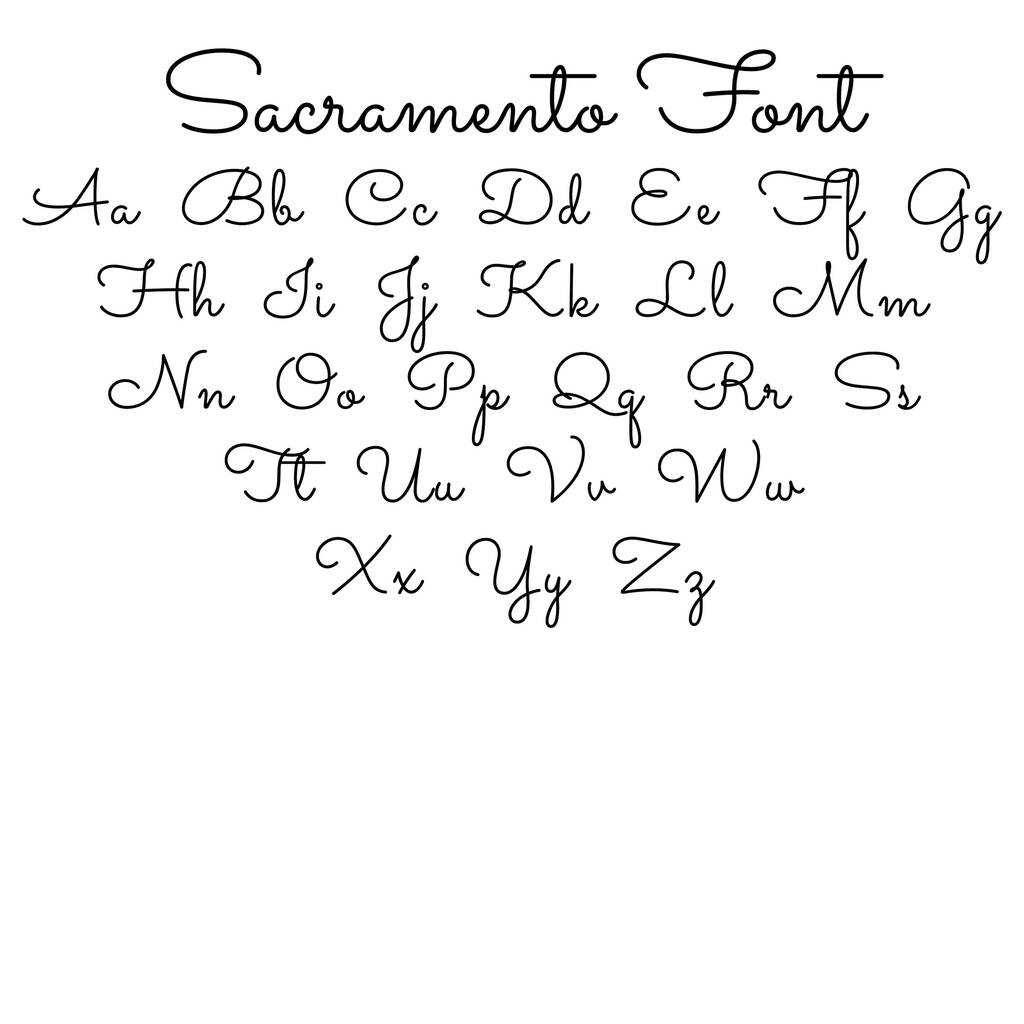 Sacramento Font
Aa Bb Cc Dd Ee Ff Gg
Hh Ii Jj Kk Ll Mm
Nn Oo Pp Qq Rr Ss
Tt Uu Vv Ww
Xx Yy Zz